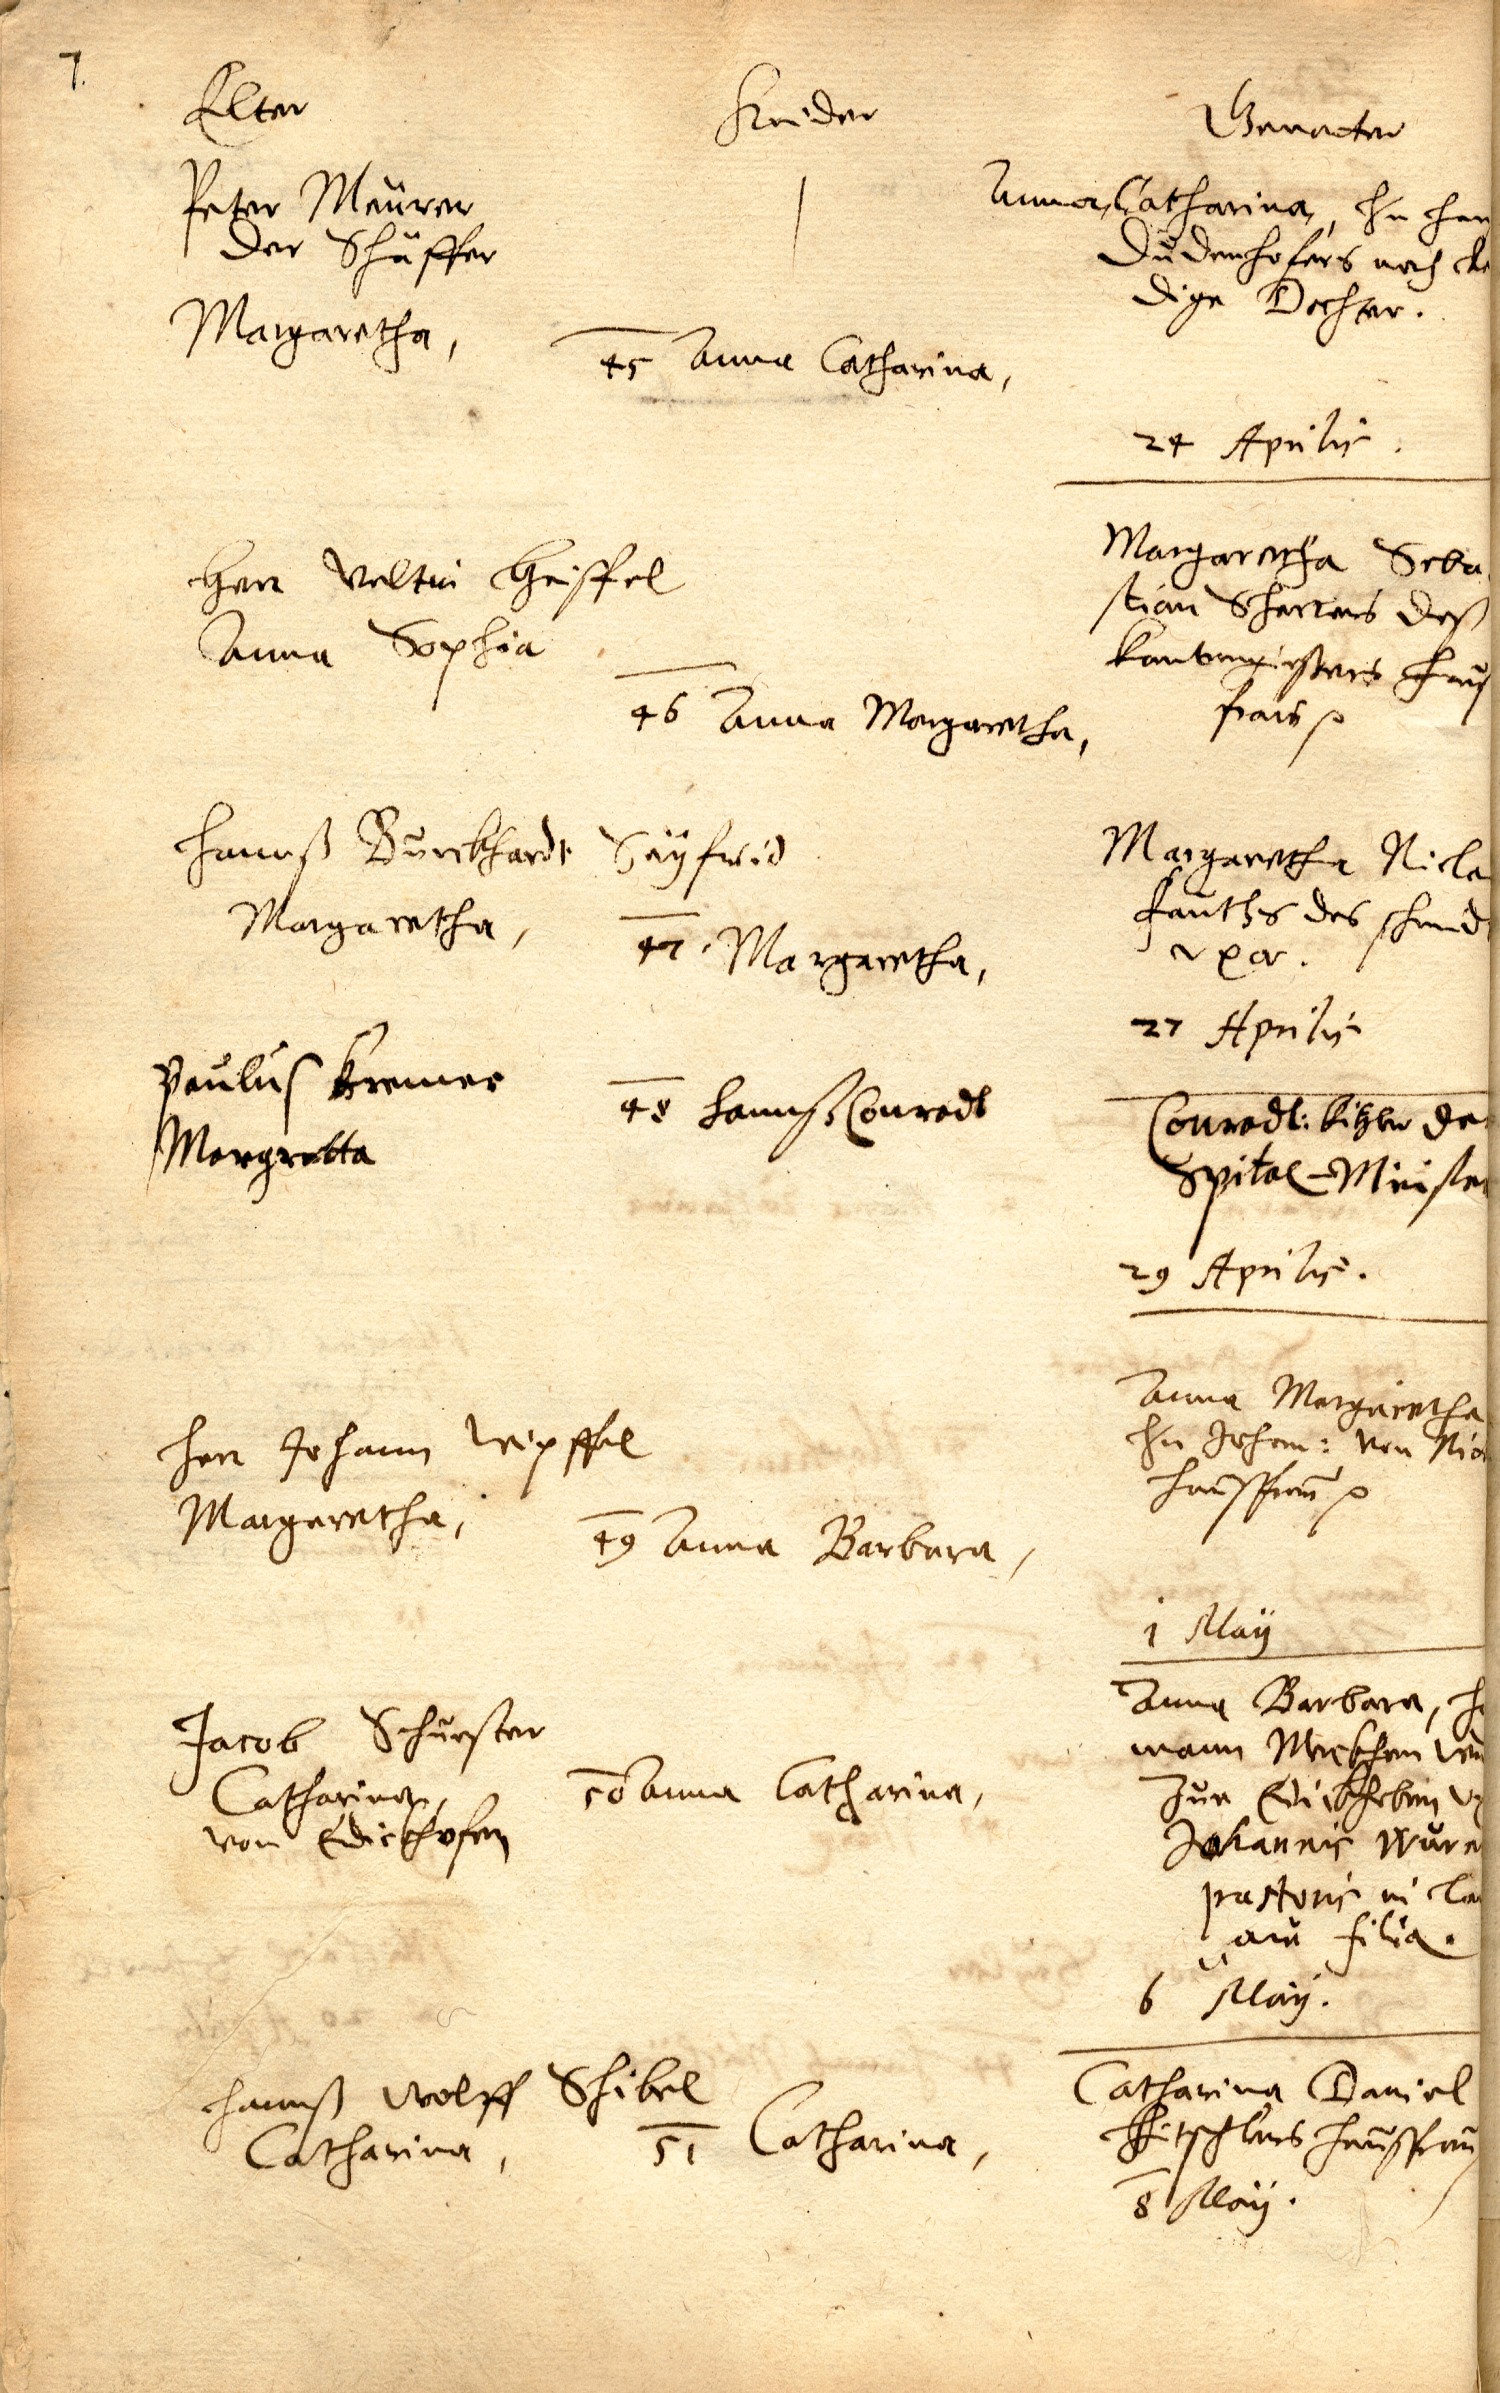 7.
Elter
Kinder
Gevatter
Peter Meürer
der Schäffer
Margaretha,
45 Anna Catharina,
Anna Catharina,
Dudenhofers noch
dige Dochter.
24 Aprilis.
Herr Veltin
Anna Sophia
46 Anna Margaretha,
Margaretha Seba
stian deß
Kantengiessers Hauß
fraw
Hannß Burckhardt Seyfrid
Margaretha,
47. Margaretha,
Margaretha Nicla
Fauths des Schmid
uxor.
27 Aprilis
Paulus Kremer
Margretta
48 Hannß Conradt
Conradt:
Spital-Meister
29 Aprilis.
Herr Johann Wipffel
Margaretha,
49 Anna Barbara,
Anna Margaretha
Hn Johan: von
haußfraw
1 Maij
Jacob Schuster
Catharina,
von Edickhofen
50 Anna Catharina,
Anna Barbara,
mann
zur
Johannis
pastoris in
aw filia.
6 Maij.
Hannß Wolff Schibel
Catharina,
51 Catharina,
Catharina Daniel
haußfraw
8 Maij.